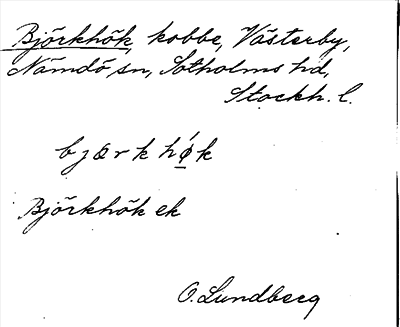 Björkhök, kobbe, Västerby,
Nämdö sn, Sotholms hd,
Stockh. l.
bjœrk hǿk
Björkhök ek
O. Lundberg